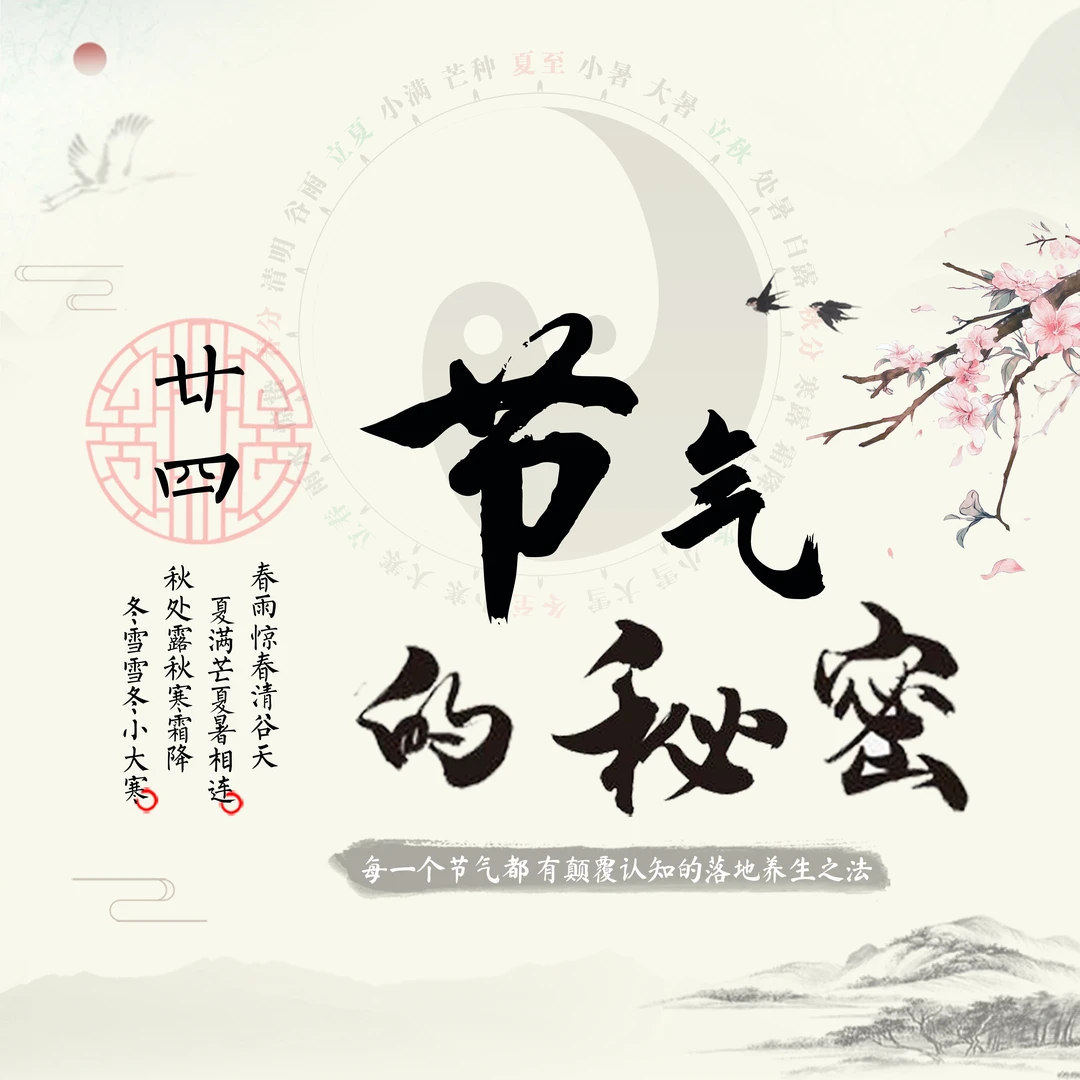 廿四
节气
的秘密
春雨惊春清谷天
夏满芒夏暑相连
秋处露秋寒霜降
冬雪雪冬小大寒
每一个节气都有颠覆认知的落地养生之法
清明
谷雨
立夏
小满
芒种
夏至
小暑
大暑
立秋
处暑
白露
秋分
寒露
霜降
小雪
大雪
冬至
小寒
大寒
立春
雨水